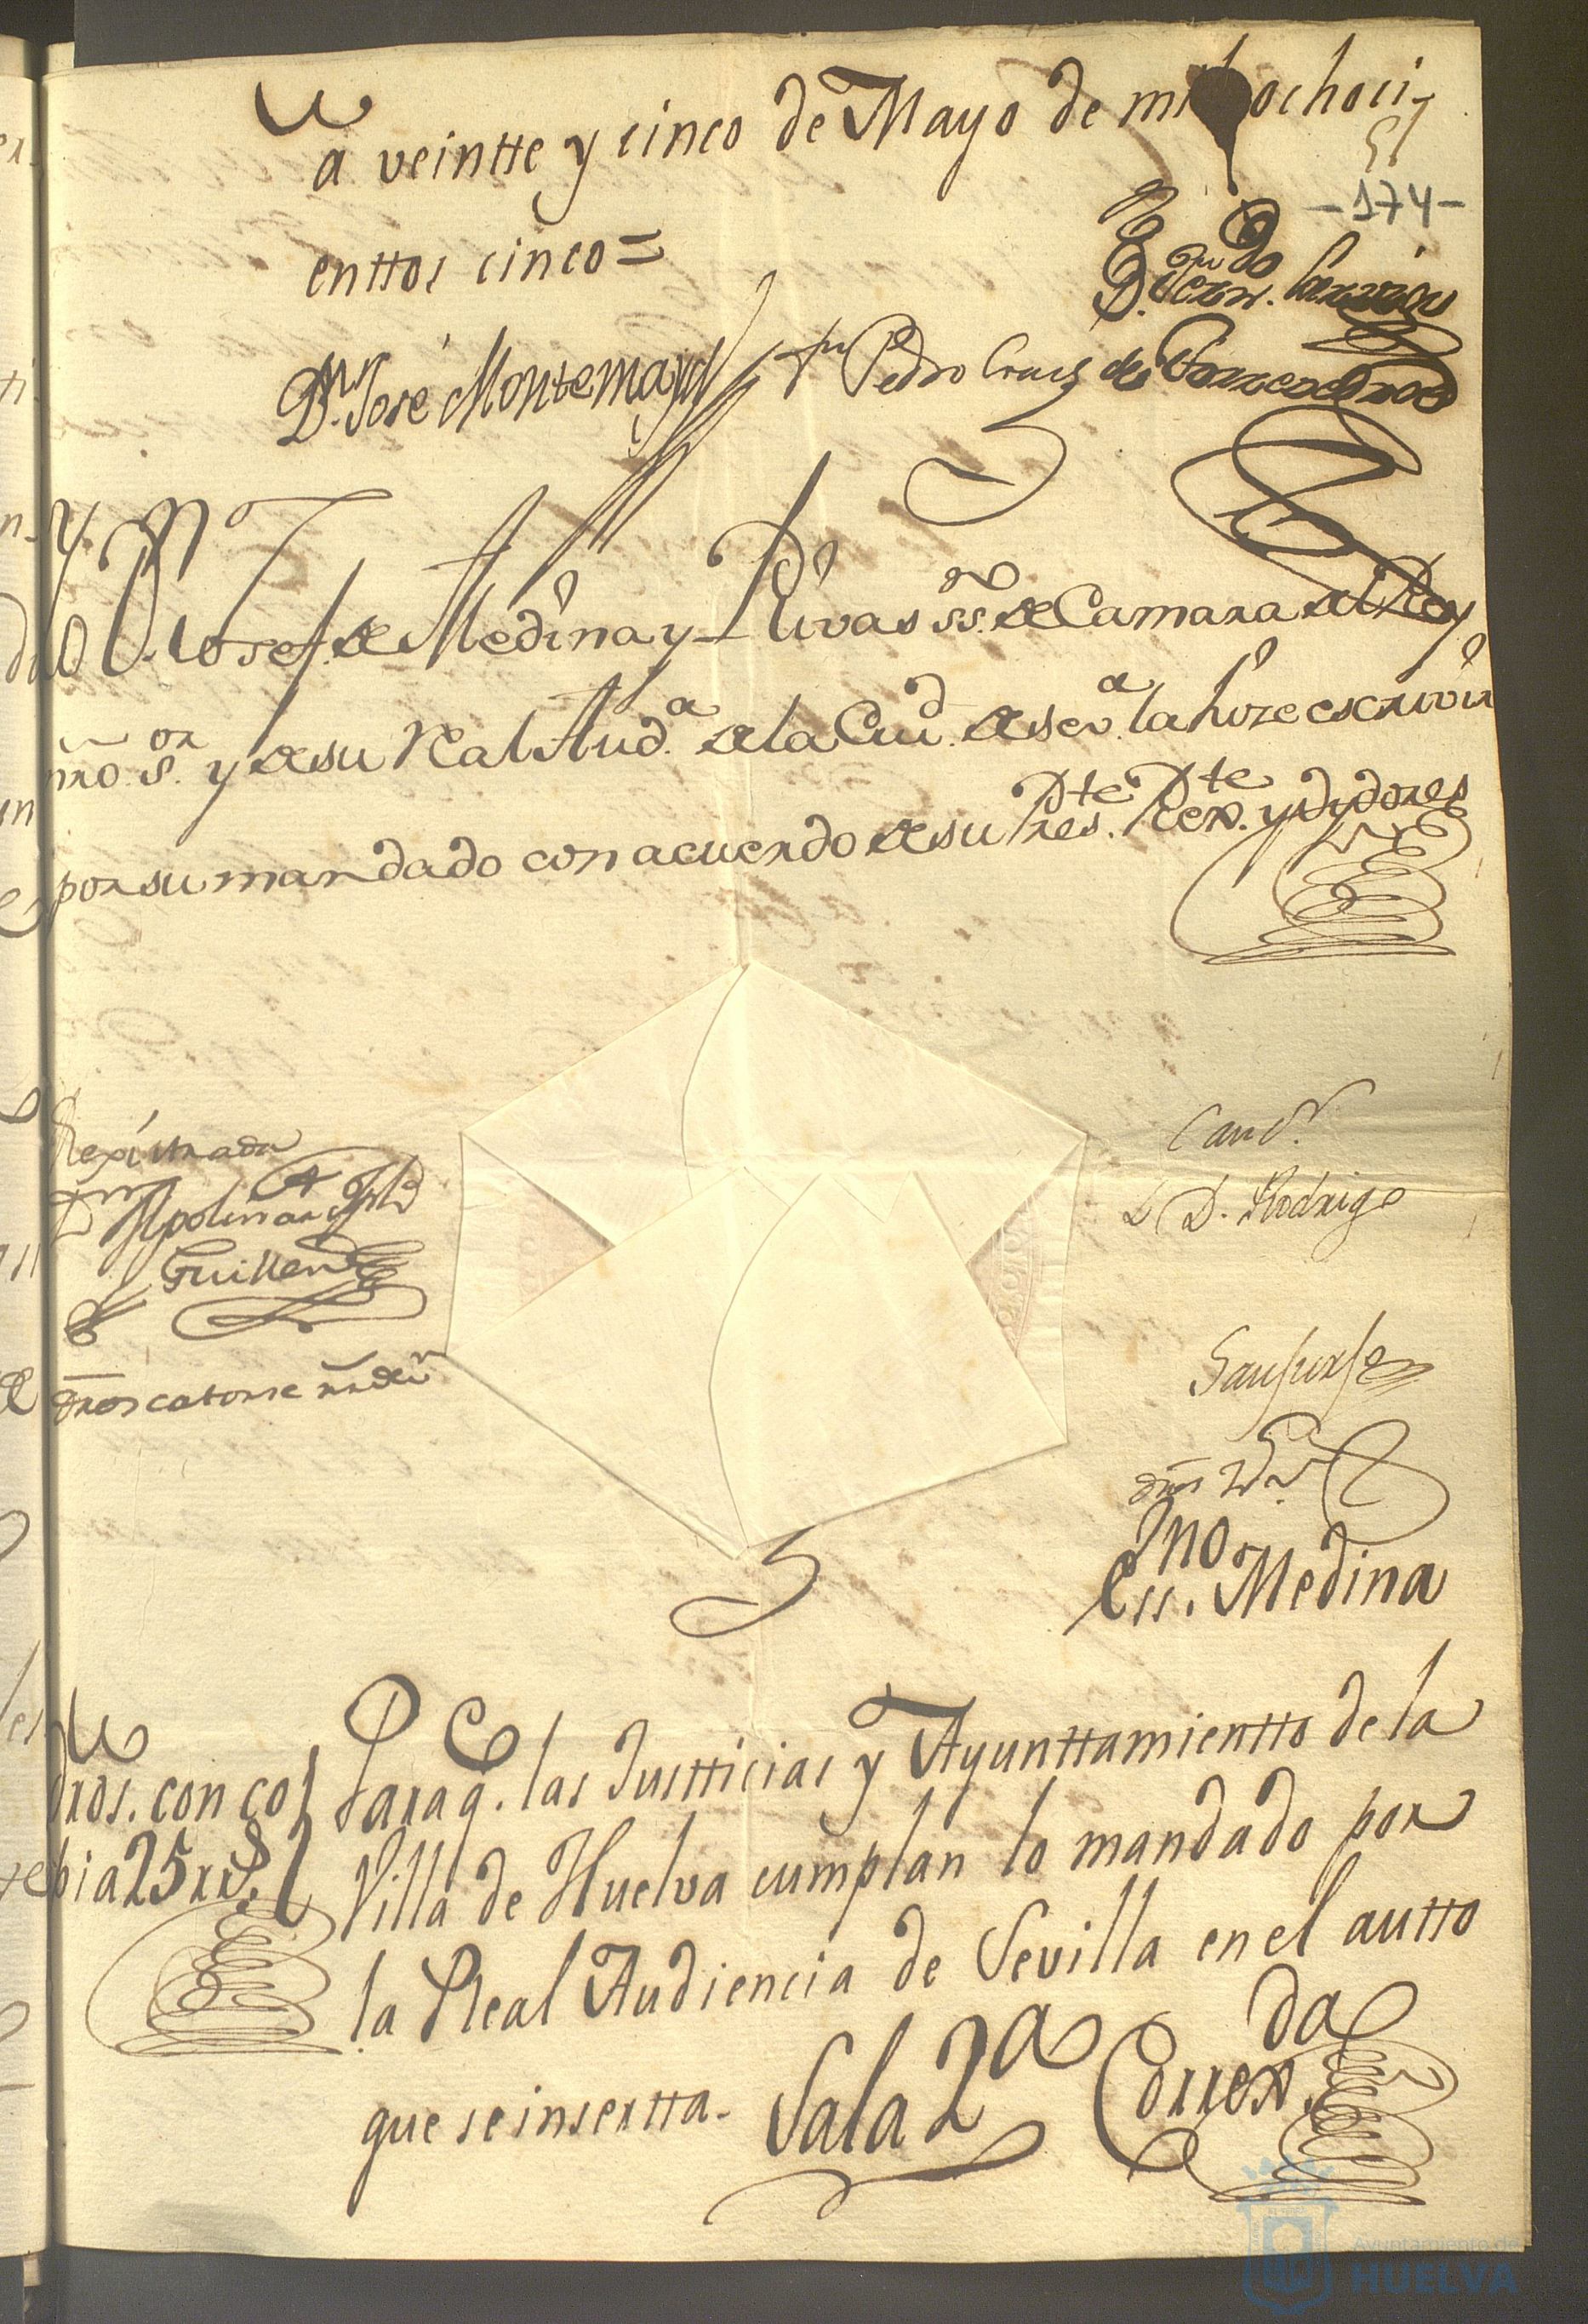 a veintte y cinco de Mayo de mil ochoci-
51
-174-
enttos cinco =
Dn. José Montemayor
Pedro Cruz de
Yo Dn. Josef. de Medina y Rivas ssno. de Camara del Rey
nro. Sor. y de su Real Auda. de la Ciud. de Seva. la hize escrivir
por su mandado con acuerdo de su Preste. Rexte. y Oydores
Rexistrada
Apolinar
Guillen
dros catorse
Canr.
D. Rodrigo
Sanjurjo
dros
Ess.no Medina
S
dros. con co
pia 25 rrs.
Para q. las Justticias y Ayunttamientto de la
Villa de Huelva cumplan lo mandado por
la Real Audiencia de Sevilla en el autto
que se insertta.
Sala 2a
Correxda.
Ayuntamiento de
HUELVA